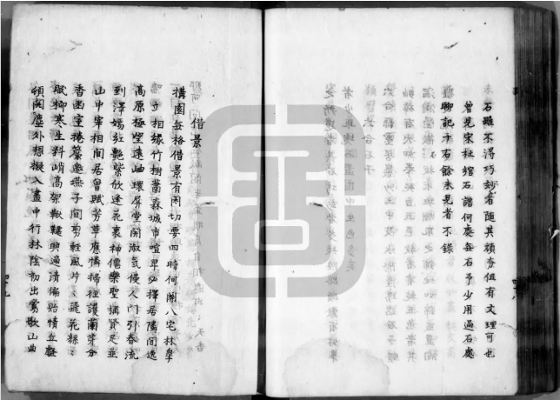 石雖不得巧妙者隨其頑夯但有文理可也
曾見宋杜綰石譜何處無石予少用過石處
聊記于右餘未見者不錄
借景
構園無格借景有因切要四時何關八宅林皋
延竚相緣竹樹蕭森城市喧卑必擇居隣閒逸
高原極望遠岫環屏堂開淑氣侵人門引春流
到澤嫣紅艷紫欣逢花裏神僊樂聖稱賢足並
山中宰相閒居曾賦芳草應憐掃徑護蘭芽分
香幽室捲簾邀燕子間剪輕風片片飛花絲絲
眠柳寒生料峭高架鞦韆興適清偏貽情丘壑
頓開塵外想擬入畫中行林陰初出鶯歌山曲